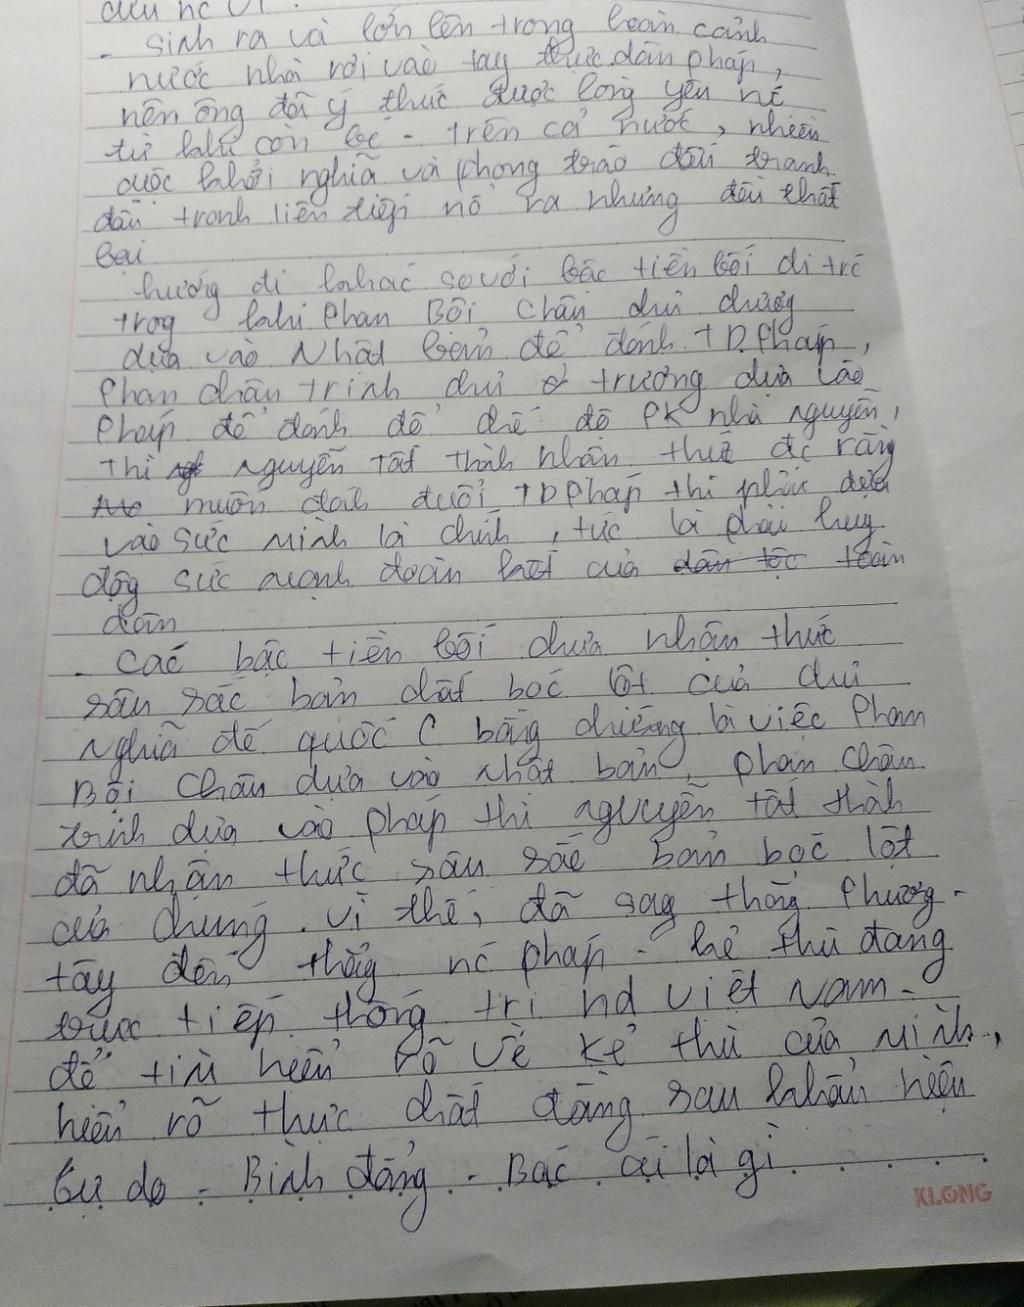 cứu nc VN.
- Sinh ra và lớn lên trong hoàn cảnh
nước nhà rơi vào tay thực dân pháp,
nên ông đã ý thức được lòng yêu nc
từ khi còn bé - trên cả nước, nhiều
cuộc khởi nghĩa và phong trào đấu tranh
đấu tranh liên tiếp nổ ra nhưng đều thất
bại
hướng đi khác so với bậc tiền bối đi trc
trog khi Phan Bội Châu chủ chương
dựa vào Nhật bản để đánh TD Pháp,
Phan châu trinh chủ trương dựa vào
Pháp để đánh đổ chế độ PK nhà nguyễn,
thì nguyễn Tất thành nhận thức đc rằng
muốn đánh đuổi TD Pháp thì phải dựa
vào sức mình là chính, tức là phải huy
độg sức mạnh đoàn kết của dân tộc toàn
dân
- Các bậc tiền bối chưa nhận thức
sâu sắc bản chất bọc lột của chủ
nghĩa đế quốc C bằng chứng là việc Phan
Bội Châu dựa vào nhật bản, phan Châu
trinh dựa vào pháp thì nguyễn tất thành
đã nhận thức sâu sắc bản bọc lột
của chúng. vì thế, đã sag thẳng Phương
tây đến thẳg nc pháp - kẻ thù đang
trực tiếp thống trị nd việt Nam -
để tìm hiểu rõ về kẻ thù của mình,
hiểu rõ thực chất đằng sau khẩu hiệu
tự do - Bình đẳng - Bác ái là gì
KLONG